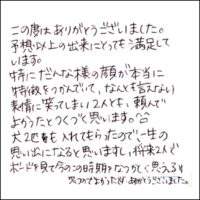 この度はありがとうございました。
予想以上の出来にとっても満足して
います。
特にだんな様の顔が本当に
特徴をつかんでいて、なんとも言えない
表情に笑ってしまい2人とも、頼んで
よかったとつくづく思います。
犬2匹も入れてもらったので一生の
思い出になると思いますし、将来2人で
ボードを見て今のこの時期をなつかしく思う
ありがとうございました。